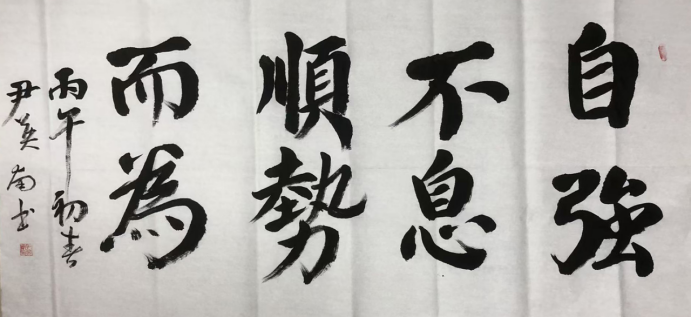 自強
不息
順勢
而為
丙午初春
尹英南书